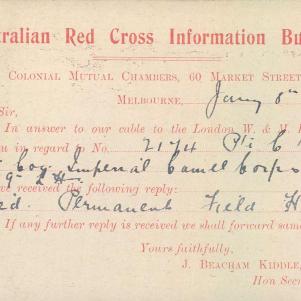 tralian Red Cross Information Bu
Colonial Mutual Chambers, 60 Market Street
Melbourne, Jany 8th
Sir,
In answer to our cable to the London W. & M.
u in regard to No. 2174 Pte C
Coy. Imperial Camel Corps
9th L.H.
ve received the following reply:
Permanent Field H
If any further reply is received we shall forward same
Yours faithfully,
J. BEACHAM KIDDLE,
Hon Secre